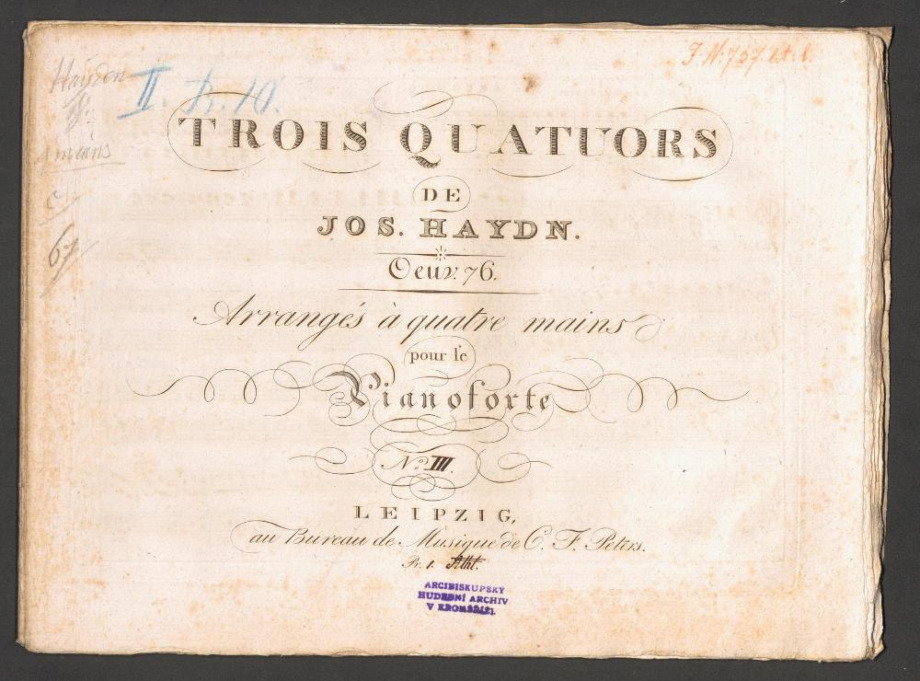 Haydn
II. Fr. 10.
4 mains
67
TROIS QUATUORS
DE
JOS. HAYDN.
Oeuv. 76.
Arrangés à quatre mains
pour le
Pianoforte
No. III.
LEIPZIG,
au Bureau de Musique de C. F. Peters.
Pr. 1. Rtht.
ARCIBISKUPSKÝ
HUDEBNÍ ARCHIV
V KROMĚŘÍŽI.